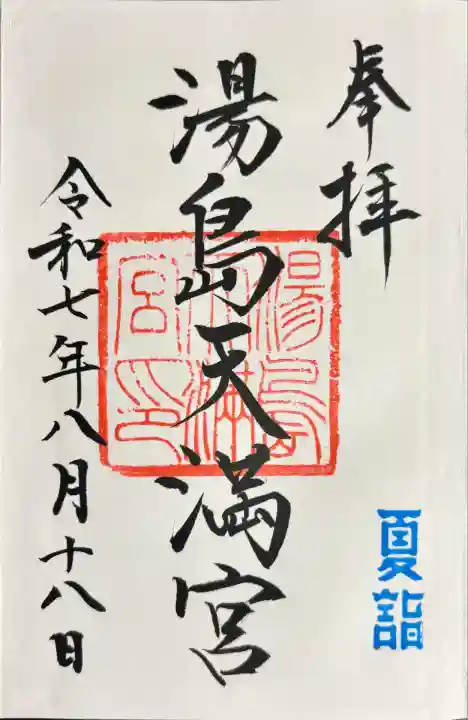 奉拝
湯島天満宮
湯島天満宮印
令和七年八月十八日
夏詣